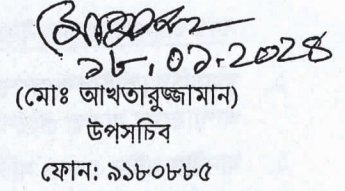 ১৮.০১.২০২৪
(মোঃ আখতারুজ্জামান)
উপসচিব
ফোন: ৯১৮০৮৮৫